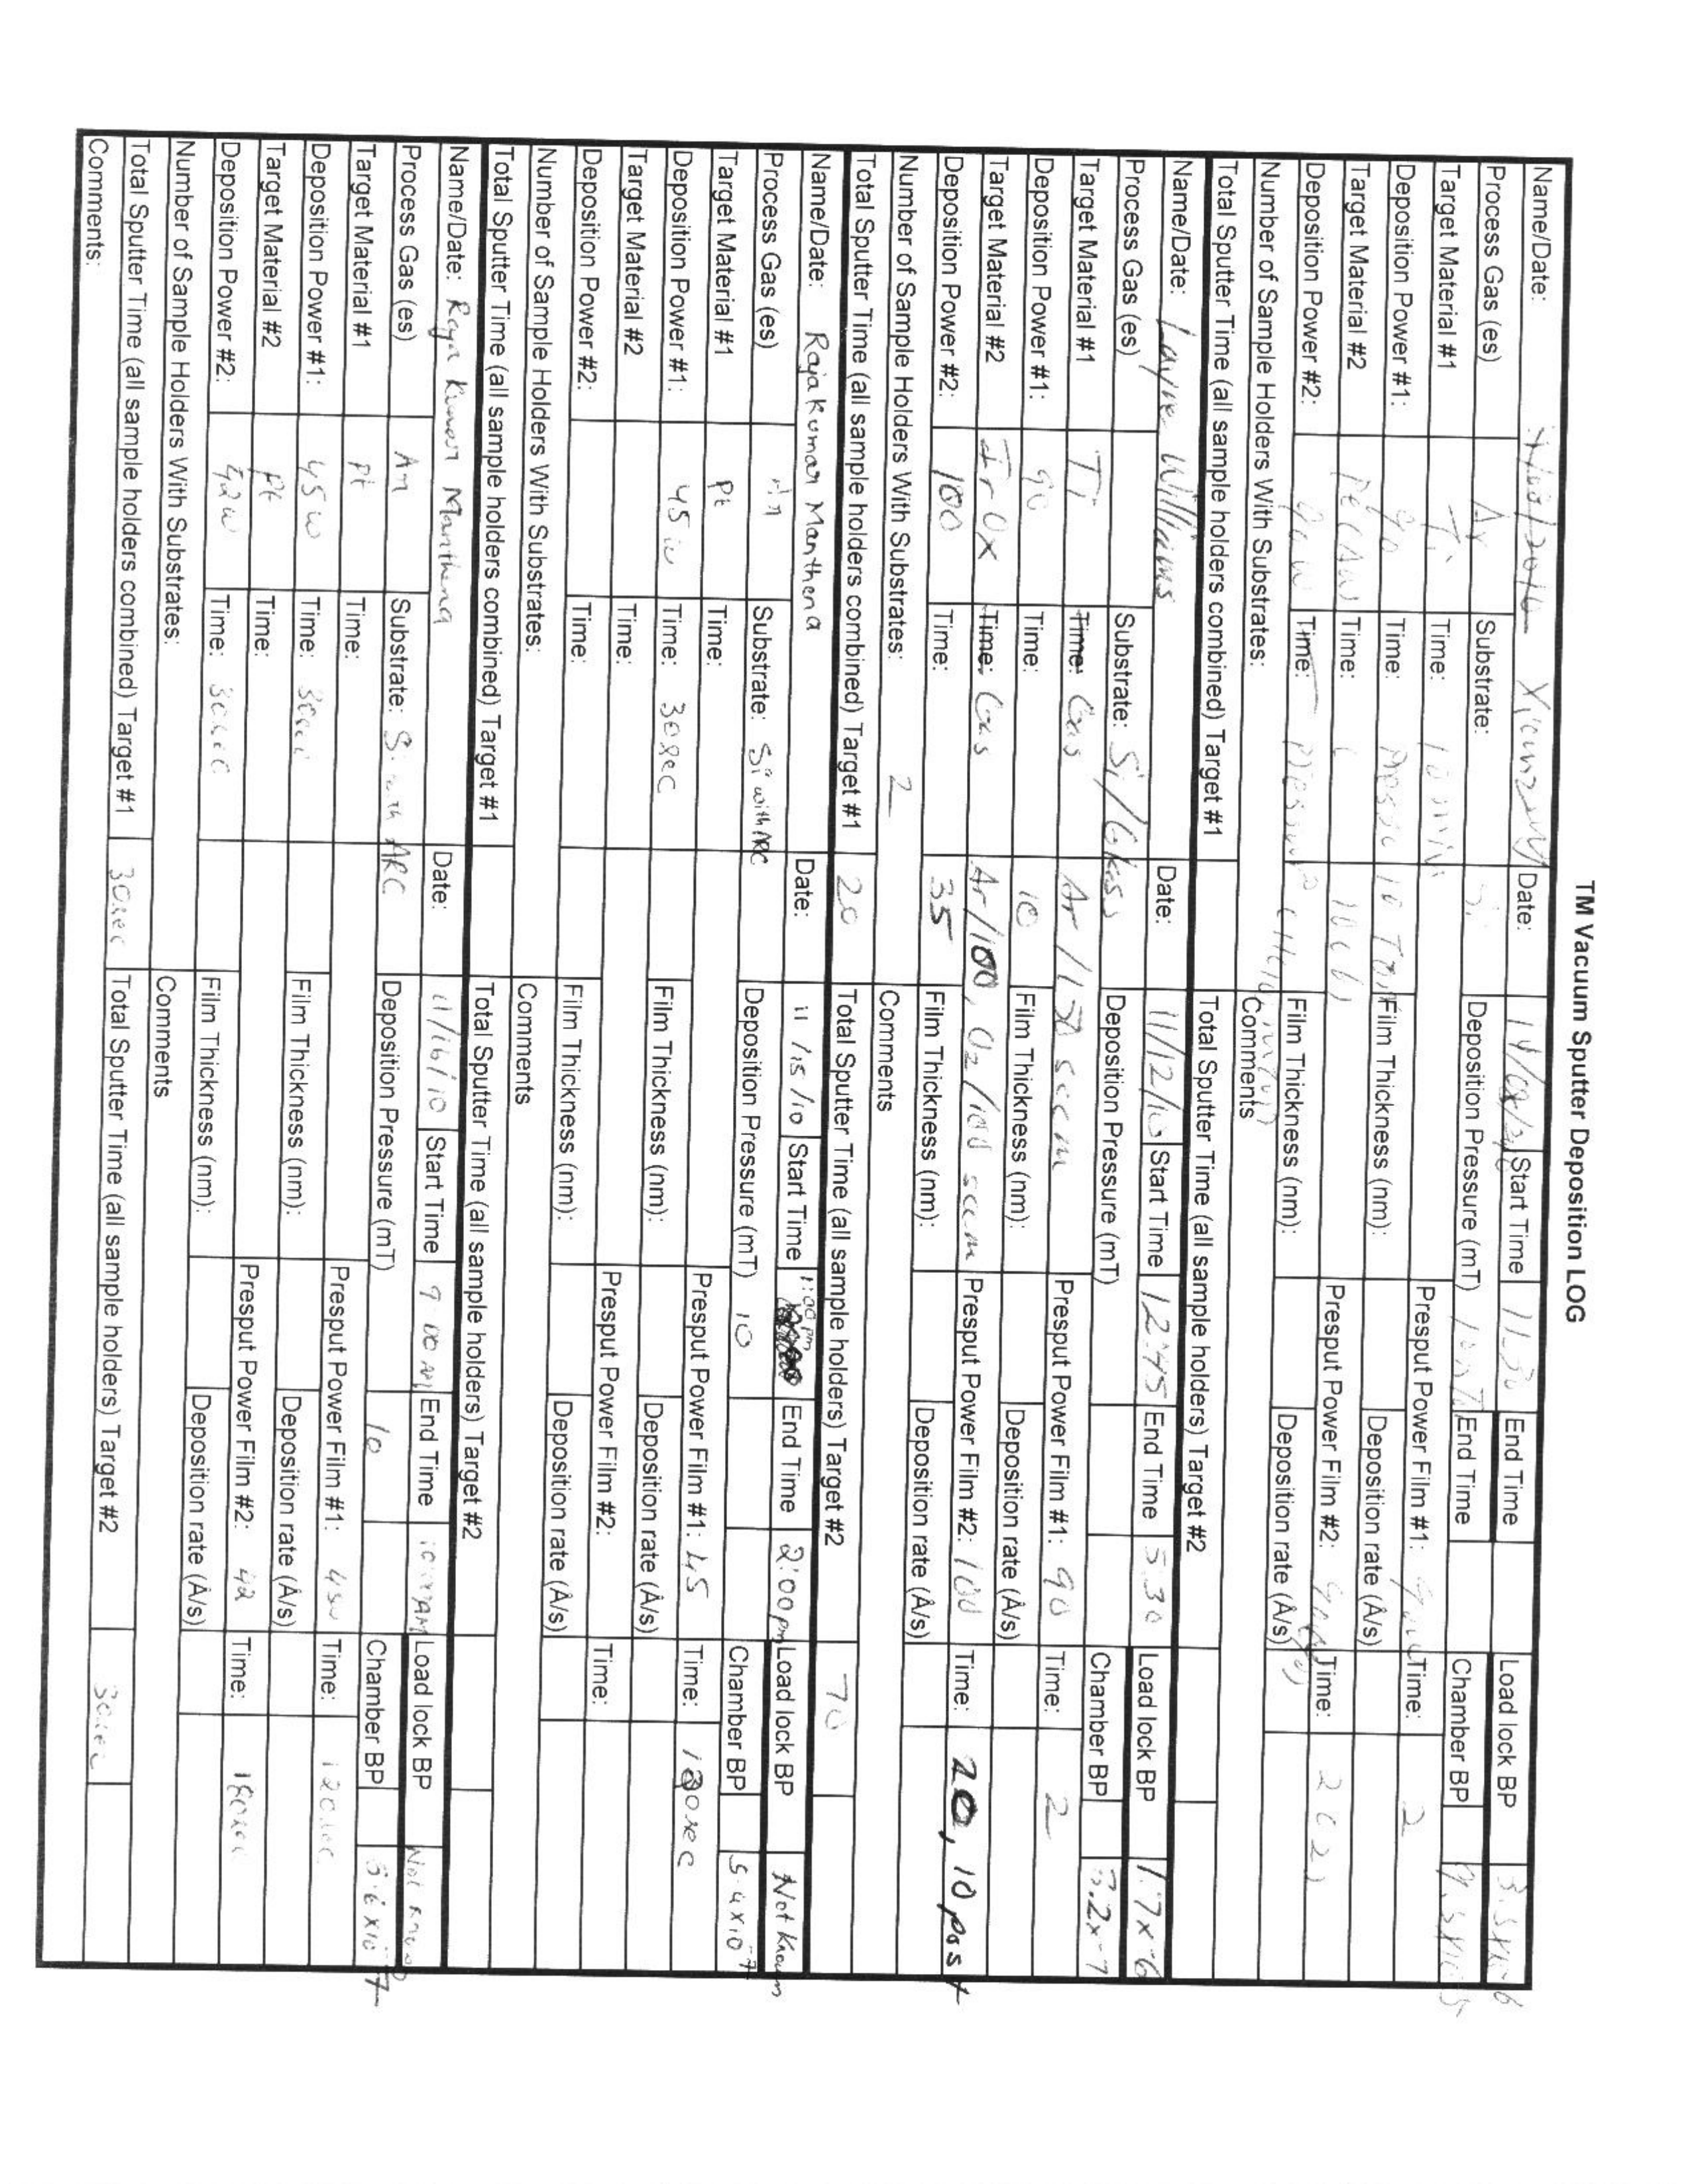 TM Vacuum Sputter Deposition LOG
Name/Date: Date: Start Time End Time Load lock BP
Process Gas (es) Ar Substrate: Si Deposition Pressure (mT) End Time Chamber BP
Target Material #1 Ti Time: 10 min Presput Power Film #1: Time: 2
Deposition Power #1: 90 Time: Film Thickness (nm): Deposition rate (Å/s)
Target Material #2 Time: Presput Power Film #2: Time:
Deposition Power #2: 90 W Time: Film Thickness (nm): Deposition rate (Å/s)
Number of Sample Holders With Substrates: Comments
Total Sputter Time (all sample holders combined) Target #1 Total Sputter Time (all sample holders) Target #2
Name/Date: Layne Williams Date: 11/12/10 Start Time 12:45 End Time 5:30 Load lock BP 1.7x-6
Process Gas (es) Substrate: Si/Glass Deposition Pressure (mT) Chamber BP
Target Material #1 Ti Time: Gas Ar / 130 sccm Presput Power Film #1: 90 Time: 2
Deposition Power #1: 90 Time: 10 Film Thickness (nm): Deposition rate (Å/s)
Target Material #2 IrOx Time: Gas Ar/100, O2/100 sccm Presput Power Film #2: 100 Time: 20, 10 post
Deposition Power #2: 100 Time: 35 Film Thickness (nm): Deposition rate (Å/s)
Number of Sample Holders With Substrates: 2 Comments
Total Sputter Time (all sample holders combined) Target #1 20 Total Sputter Time (all sample holders) Target #2 70
Name/Date: Rajakumar Manthena Date: 11/15/10 Start Time 1:00pm End Time 2:00pm Load lock BP Not Known
Process Gas (es) Substrate: Si with ARC Deposition Pressure (mT) 10 Chamber BP 5.4x10-7
Target Material #1 Pt Time: Presput Power Film #1: 45 Time: 180sec
Deposition Power #1: 45 W Time: 30sec Film Thickness (nm): Deposition rate (Å/s)
Target Material #2 Time: Presput Power Film #2: Time:
Deposition Power #2: Time: Film Thickness (nm): Deposition rate (Å/s)
Number of Sample Holders With Substrates: Comments
Total Sputter Time (all sample holders combined) Target #1 Total Sputter Time (all sample holders) Target #2
Name/Date: Raja Kumar Manthena Date: 11/16/10 Start Time End Time Load lock BP Not Known
Process Gas (es) Substrate: Si with ARC Deposition Pressure (mT) 10 Chamber BP
Target Material #1 Pt Time: Presput Power Film #1: Time:
Deposition Power #1: 45 W Time: 30sec Film Thickness (nm): Deposition rate (Å/s)
Target Material #2 Pt Time: Presput Power Film #2: 42 Time: 180sec
Deposition Power #2: 42 W Time: 30sec Film Thickness (nm): Deposition rate (Å/s)
Number of Sample Holders With Substrates: Comments
Total Sputter Time (all sample holders combined) Target #1 30sec Total Sputter Time (all sample holders) Target #2 30sec
Comments: